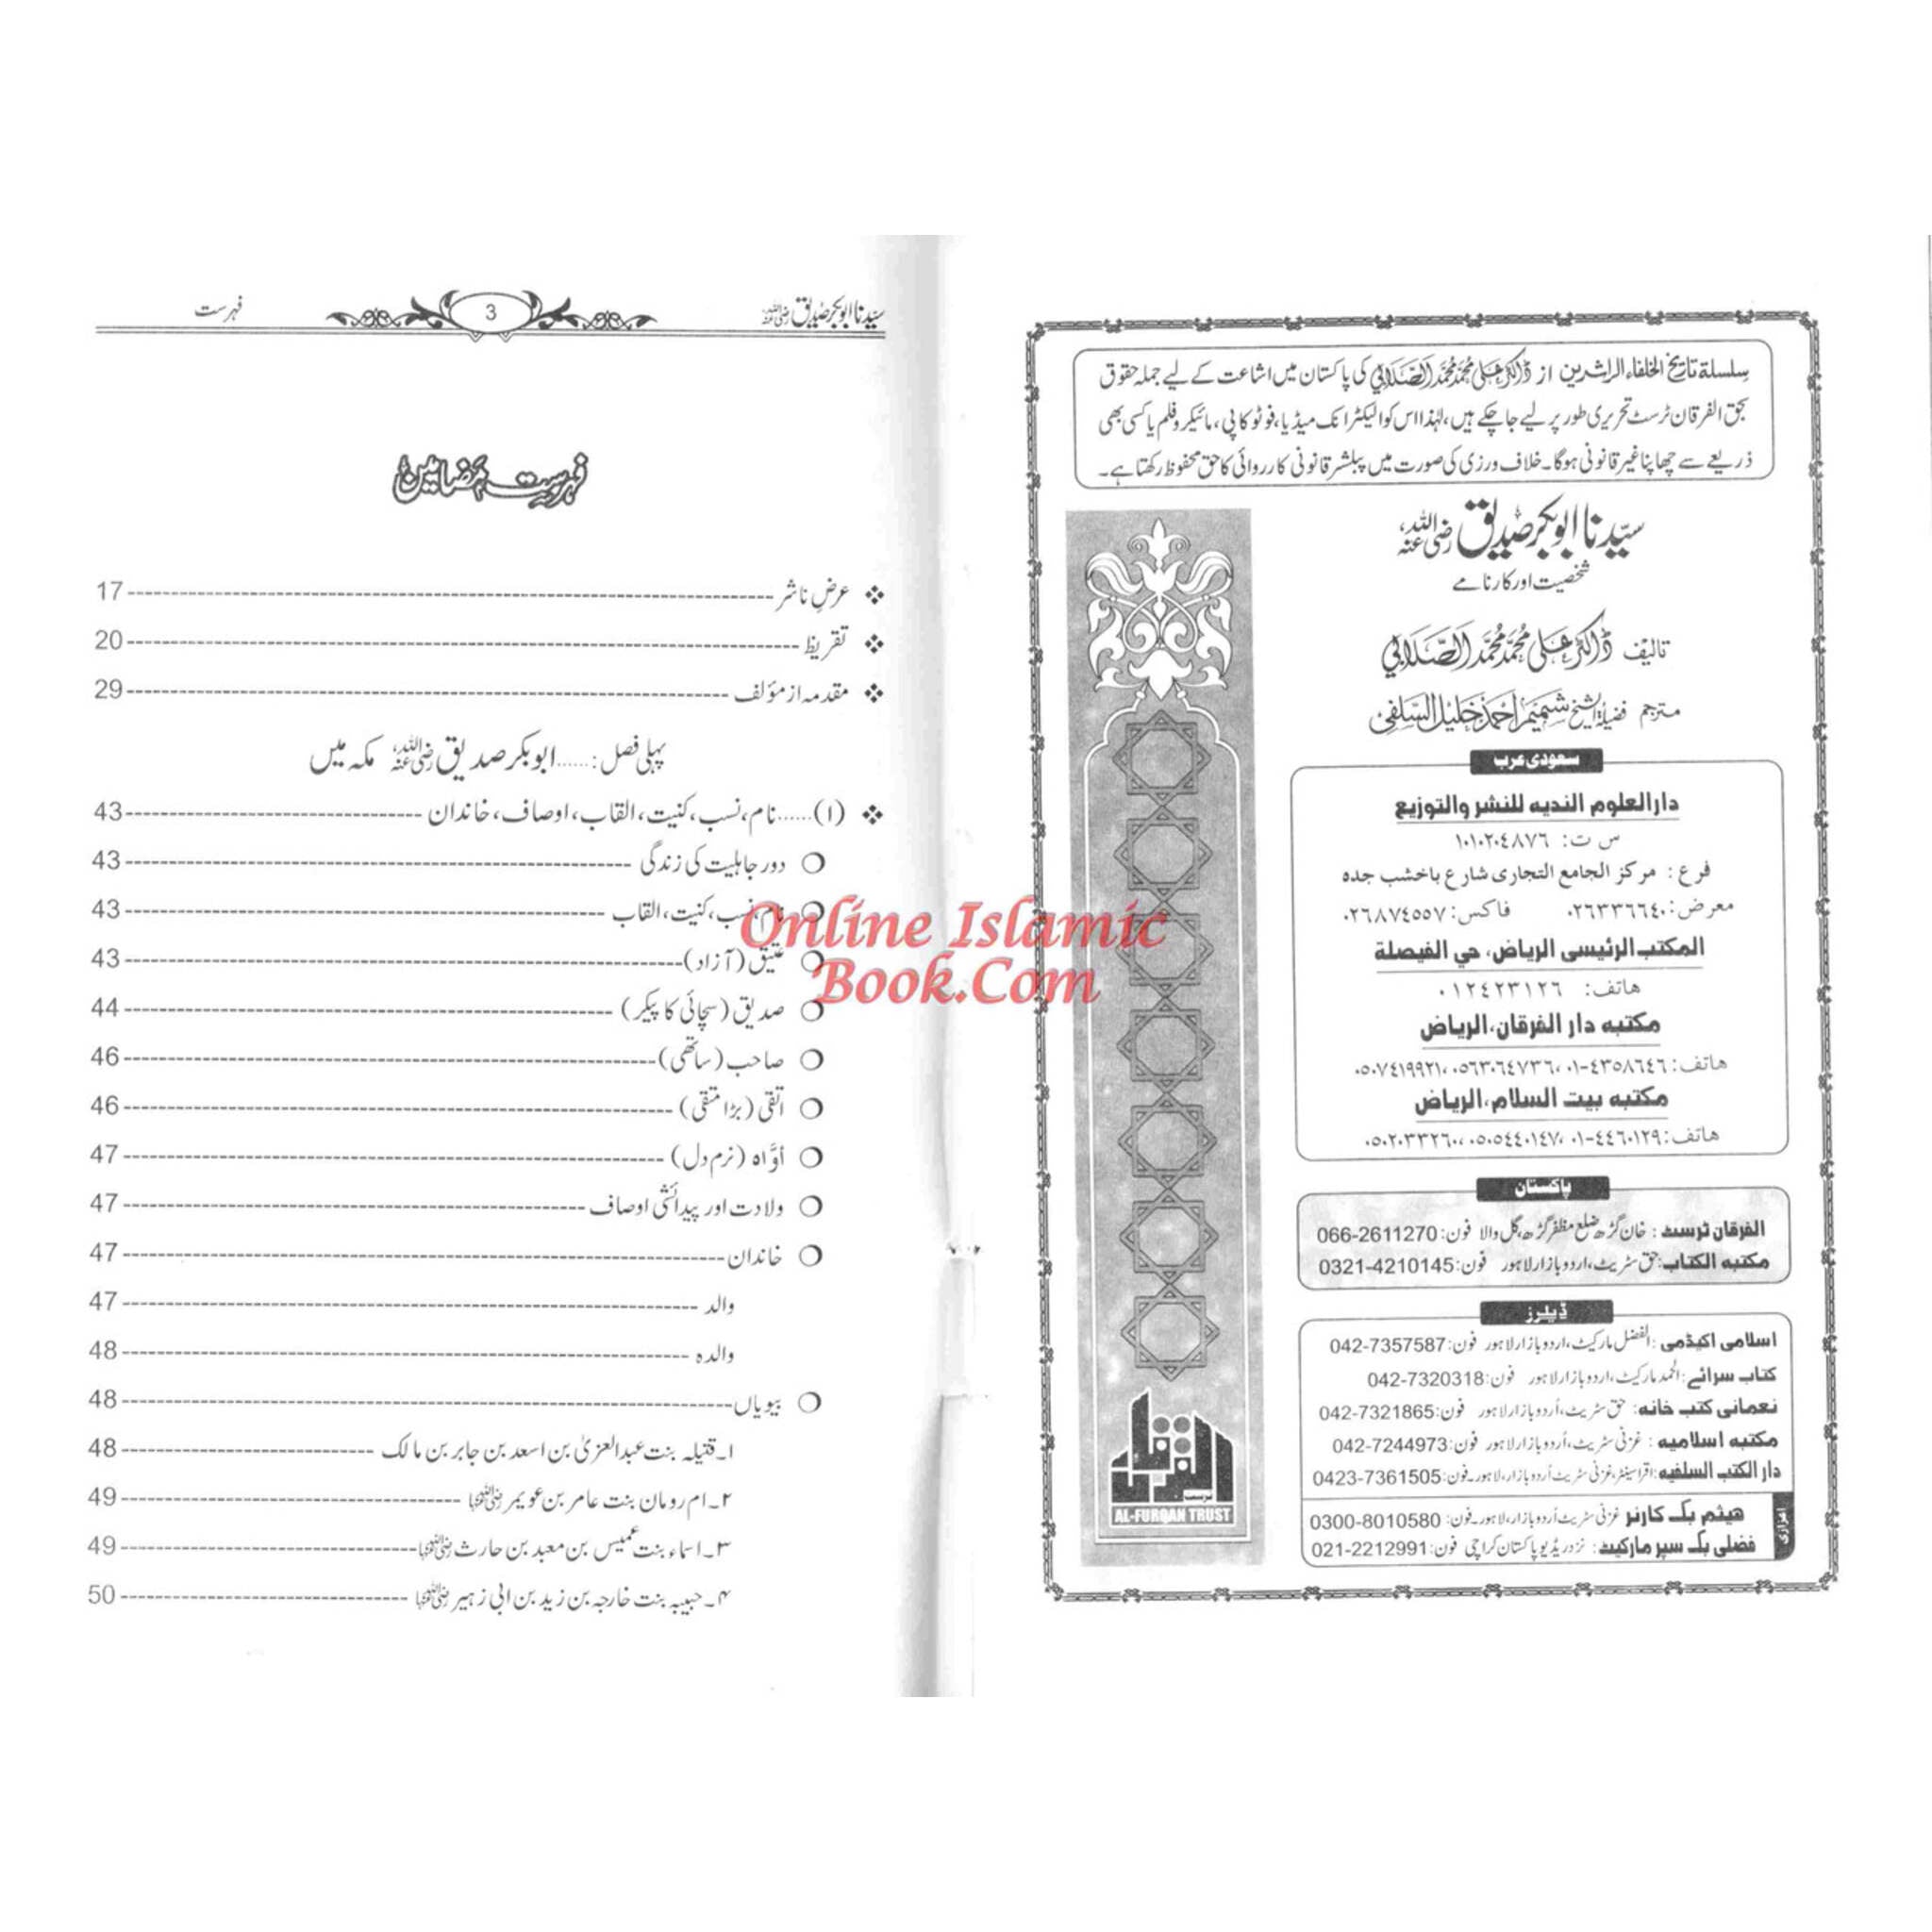 سلسلة تاریخ الخلفاء الراشدین از ڈاکٹر علی محمد محمد الصلابی کی پاکستان میں اشاعت کے لیے جملہ حقوق
بحق الفرقان ٹرسٹ تحریری طور پر لیے جا چکے ہیں، لہٰذا اس کو الیکٹرانک میڈیا، فوٹو کاپی، مائیکرو فلم یا کسی بھی
ذریعے سے چھاپنا غیر قانونی ہوگا۔ خلاف ورزی کی صورت میں پبلشر قانونی کارروائی کا حق محفوظ رکھتا ہے۔
سیّدنا ابوبکر صدیق رضی اللہ عنہ
شخصیت اور کارنامے
تالیف ڈاکٹر علی محمد محمد الصلابی
مترجم فضیلۃ الشیخ شمیم احمد خلیل السلفی
سعودی عرب
دار العلوم الندیه للنشر والتوزیع
س ت: ١٠١٠٢٠٤٨٧٦
فرع: مركز الجامع التجاری شارع باخشب جده
معرض: ٠٢٦٣٣٦٦٤٠ فاكس: ٠٢٦٨٧٤٥٥٧
المكتب الرئیسی الریاض، حي الفیصلة
هاتف: ٠١٢٤٢٣١٢٦
مكتبه دار الفرقان، الریاض
هاتف: ٠١-٤٣٥٨٦٤٦، ٠٥٦٣٠٦٤٧٣٦، ٠٥٠٧٤١٩٩٢١
مكتبه بیت السلام، الریاض
هاتف: ٠١-٤٤٦٠١٢٩، ٠٥٠٥٤٤٠١٤٧، ٠٥٠٢٠٣٣٢٦٠
پاکستان
الفرقان ٹرسٹ: خان گڑھ ضلع مظفر گڑھ، گل والا فون: 066-2611270
مکتبه الکتاب: حق سٹریٹ، اردو بازار لاہور فون: 0321-4210145
ڈیلرز
اسلامی اکیڈمی: الفضل مارکیٹ، اردو بازار لاہور فون: 042-7357587
کتاب سرائے: الحمد مارکیٹ، اردو بازار لاہور فون: 042-7320318
نعمانی کتب خانه: حق سٹریٹ، اُردو بازار لاہور فون: 042-7321865
مکتبه اسلامیه: غزنی سٹریٹ، اُردو بازار لاہور فون: 042-7244973
دار الکتب السلفیه: اقرا سینٹر، غزنی سٹریٹ اُردو بازار، لاہور۔ فون: 0423-7361505
هیثم بک کارنر غزنی سٹریٹ اُردو بازار، لاہور۔ فون: 0300-8010580
فضلی بک سپر مارکیٹ: نزد ریڈیو پاکستان کراچی فون: 021-2212991
الفرقان
ٹرسٹ
AL-FURQAN TRUST
سیّدنا ابوبکر صدیق رضی اللہ عنہ 3 فہرست
فہرست مضامین
❖ عرضِ ناشر 17
❖ تقریظ 20
❖ مقدمہ از مؤلف 29
پہلی فصل:......ابوبکر صدیق رضی اللہ عنہ مکہ میں
❖ (۱)......نام، نسب، کنیت، القاب، اوصاف، خاندان 43
○ دور جاہلیت کی زندگی 43
○ نام، نسب، کنیت، القاب 43
○ عتیق (آزاد) 43
○ صدیق (سچائی کا پیکر) 44
○ صاحب (ساتھی) 46
○ اتقی (بڑا متقی) 46
○ أوَّاہ (نرم دل) 47
○ ولادت اور پیدائشی اوصاف 47
○ خاندان 47
والد 47
والدہ 48
○ بیویاں 48
۱۔ قتیلہ بنت عبدالعزیٰ بن اسعد بن جابر بن مالک 48
۲۔ ام رومان بنت عامر بن عویمر رضی اللہ عنہا 49
۳۔ اسماء بنت عمیس بن معبد بن حارث رضی اللہ عنہا 49
۴۔ حبیبہ بنت خارجہ بن زید بن ابی زہیر رضی اللہ عنہا 50
Online Islamic
Book.Com